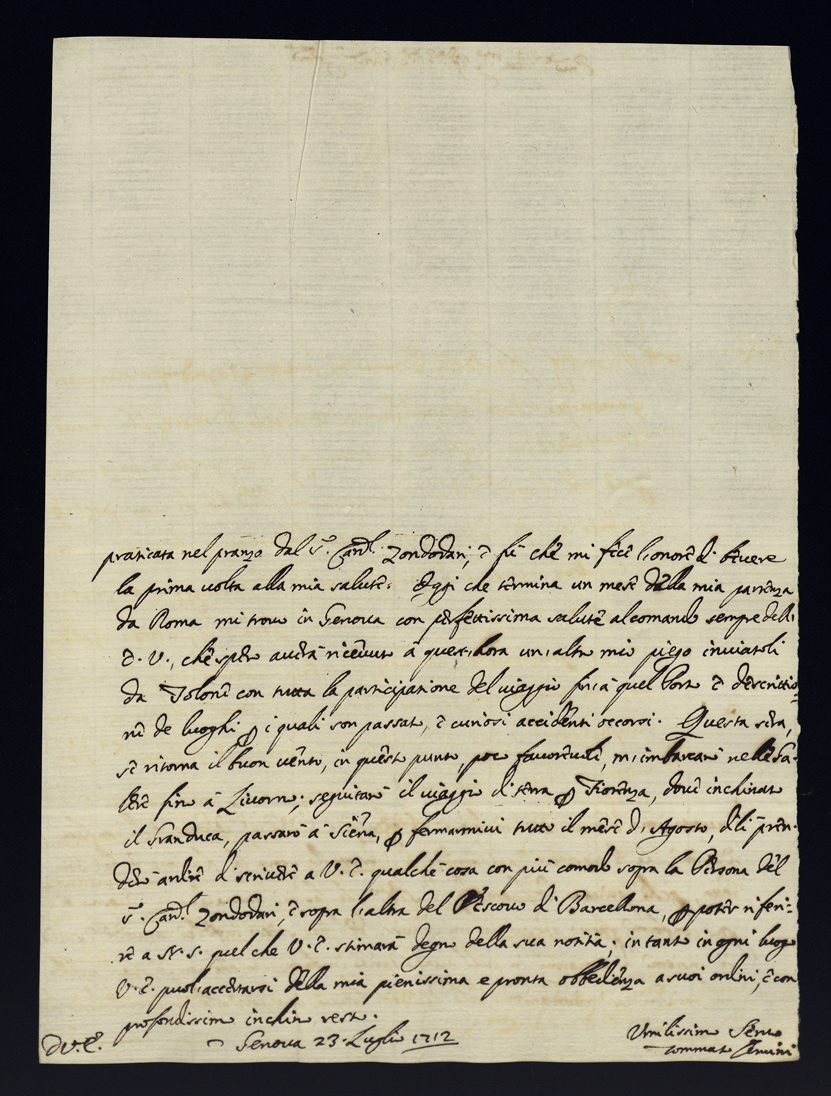 praticata nel pranzo dal S.r Card.l Zondodari, e fù chè mi fece l'onore di bevere
la prima volta alla mia salute. Oggi che termina un mese dalla mia partenza
da Roma mi trovo in Genova con perfettissima salute al comando sempre dell'
E. V., chè spero averà ricevuto à quest'hora un'altro mio piego inviatoli
da Tolone con tutta la participazione del viaggio fin'à quel Porto e descrittio-
ne de luoghi p i quali son passato, e curiosi accidenti occorsi. Questa sera,
se ritorna il buon vento, in questo punto poco favorevole, m'imbarcarò nelle Ga-
lere fino à Livorno; seguitarò il viaggio di terra p Fiorenza, dove inchinato
il Granduca, passarò à Siena, p fermarmivi tutto il mese d'Agosto, e di lì pren-
derò ardire di scrivere a V. E. qualche cosa con più comodo sopra la Persona del
S.r Card.l Zondodari, e sopra l'altra del Vescovo di Barcellona, p poter riferi-
re a N. S. quel che V. E. stimarà degno della sua notitia; in tanto in ogni luogo
V. E. puol'accertarsi della mia pienissima e pronta obbedienza a suoi ordini, e con
profondissimo inchino resto.
D V. E. Genova 23 Luglio 1712
Umilissimo Servo
Tommaso